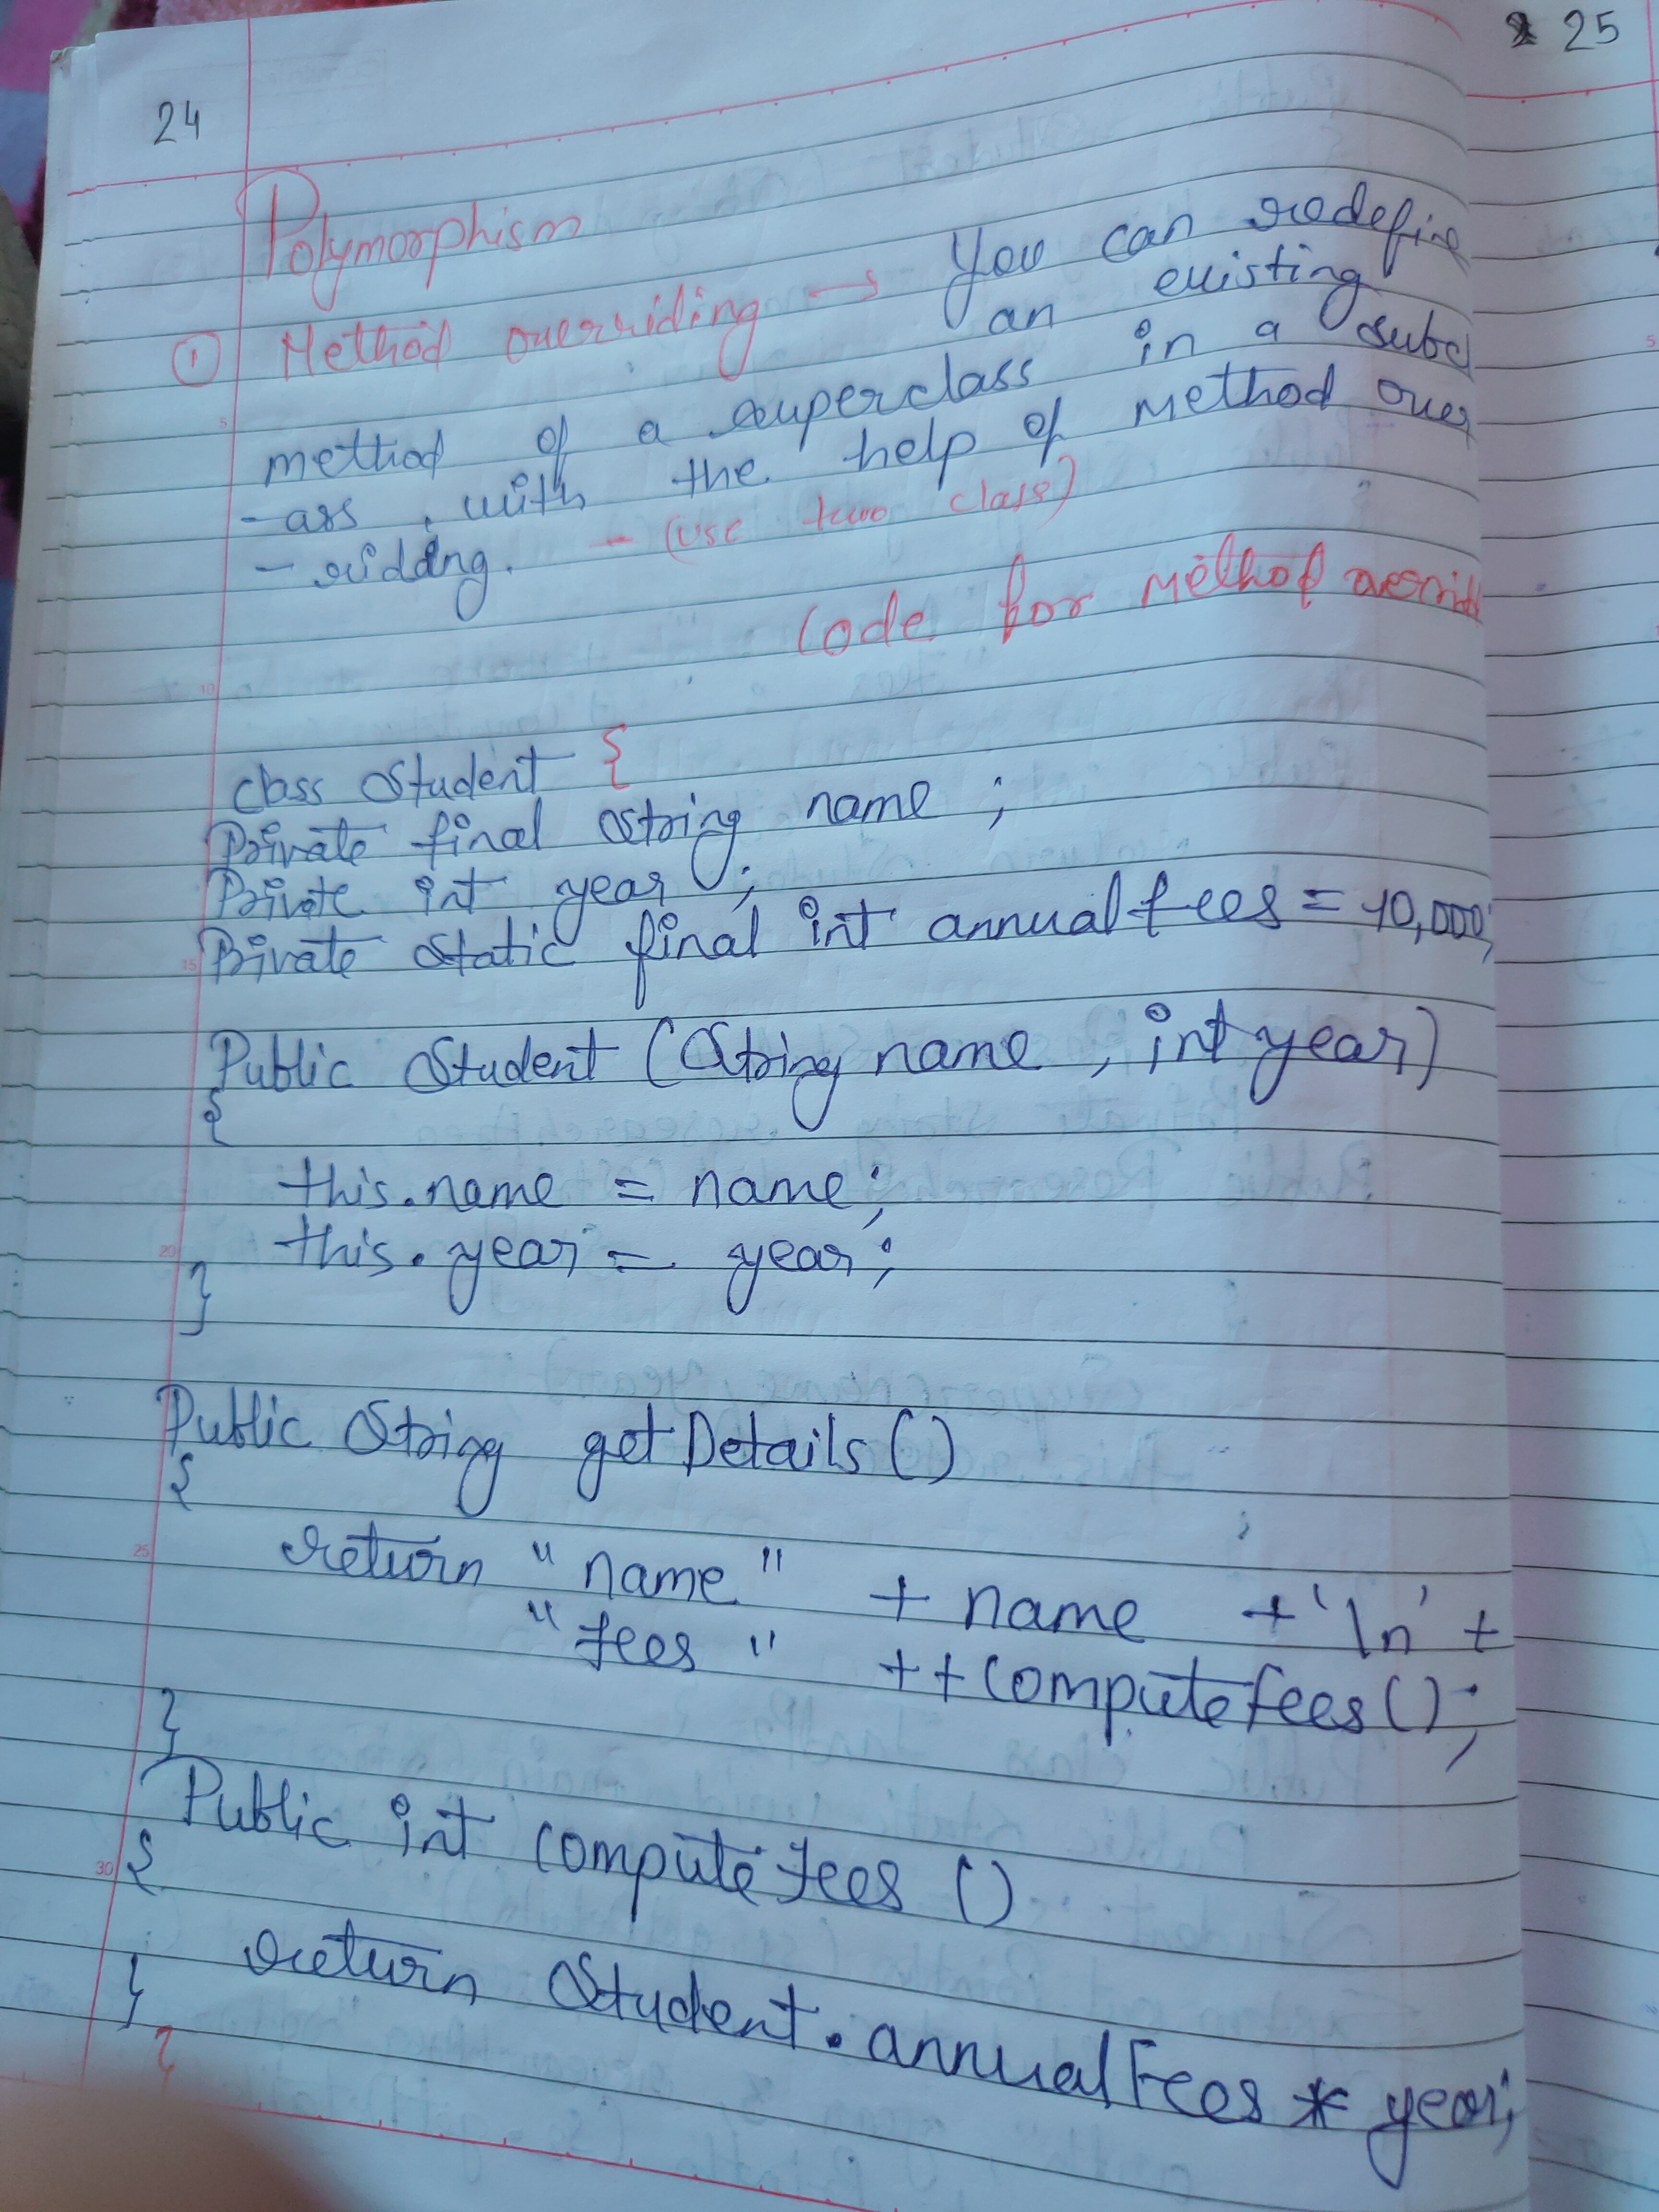 24
25
Polymorphism
① Method overriding → You can redefine
an existing
method of a superclass in a subcl
-ass, with the help of Method over
- ridding. - (use two class)
Code for Method
class Student {
Private final String name ;
Private int year ;
Private static final int annualfees = 10,000;
Public Student (String name , int year)
{
this.name = name;
this.year = year;
}
Public String getDetails ()
{
return "name" + name + '\n' +
"fees" + + computefees();
}
Public int computefees ()
{
return Student.annualFees * year;
}
}